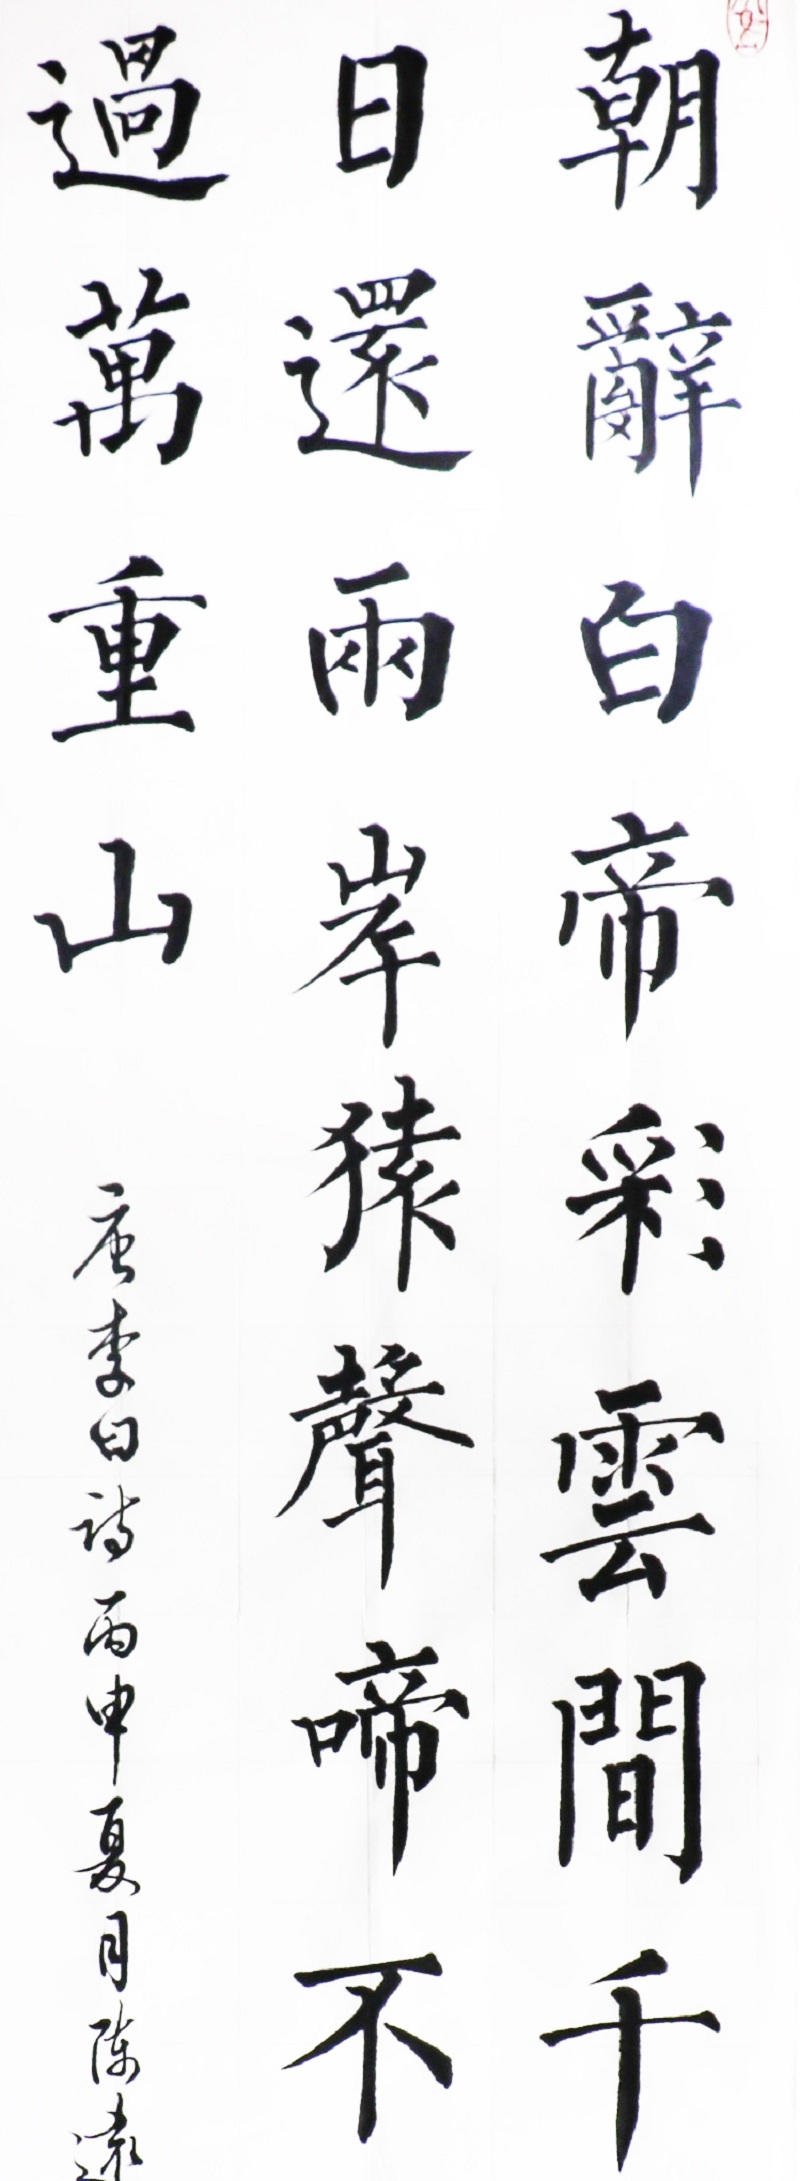 朝辭白帝彩雲間千
日還兩岸猿聲啼不
過萬重山
唐李白诗丙申夏月陈遠